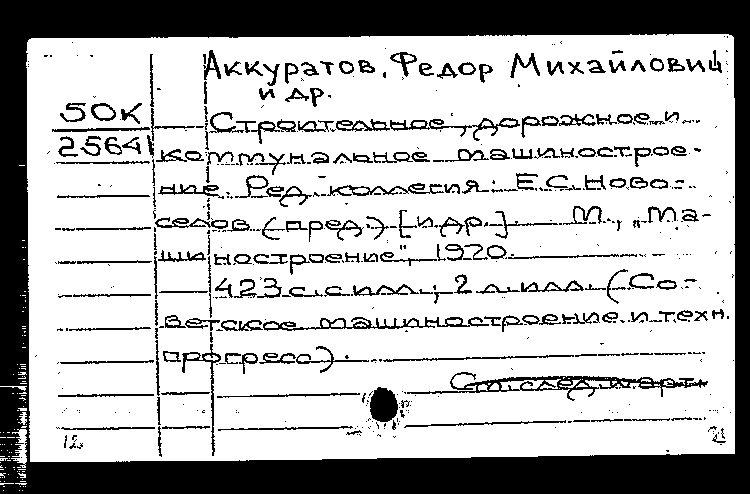 Аккуратов, Федор Михайлович
и др.
50К
25641
Строительное, дорожное и
коммунальное машинострое-
ние. Ред. коллегия: Е.С. Ново-
селов (пред.) [и др.]. М., „Ма-
шиностроение", 1970.
423 с. с илл.; 2 л. илл. (Со-
ветское машиностроение и техн.
прогресс).
См. след. карт.
12